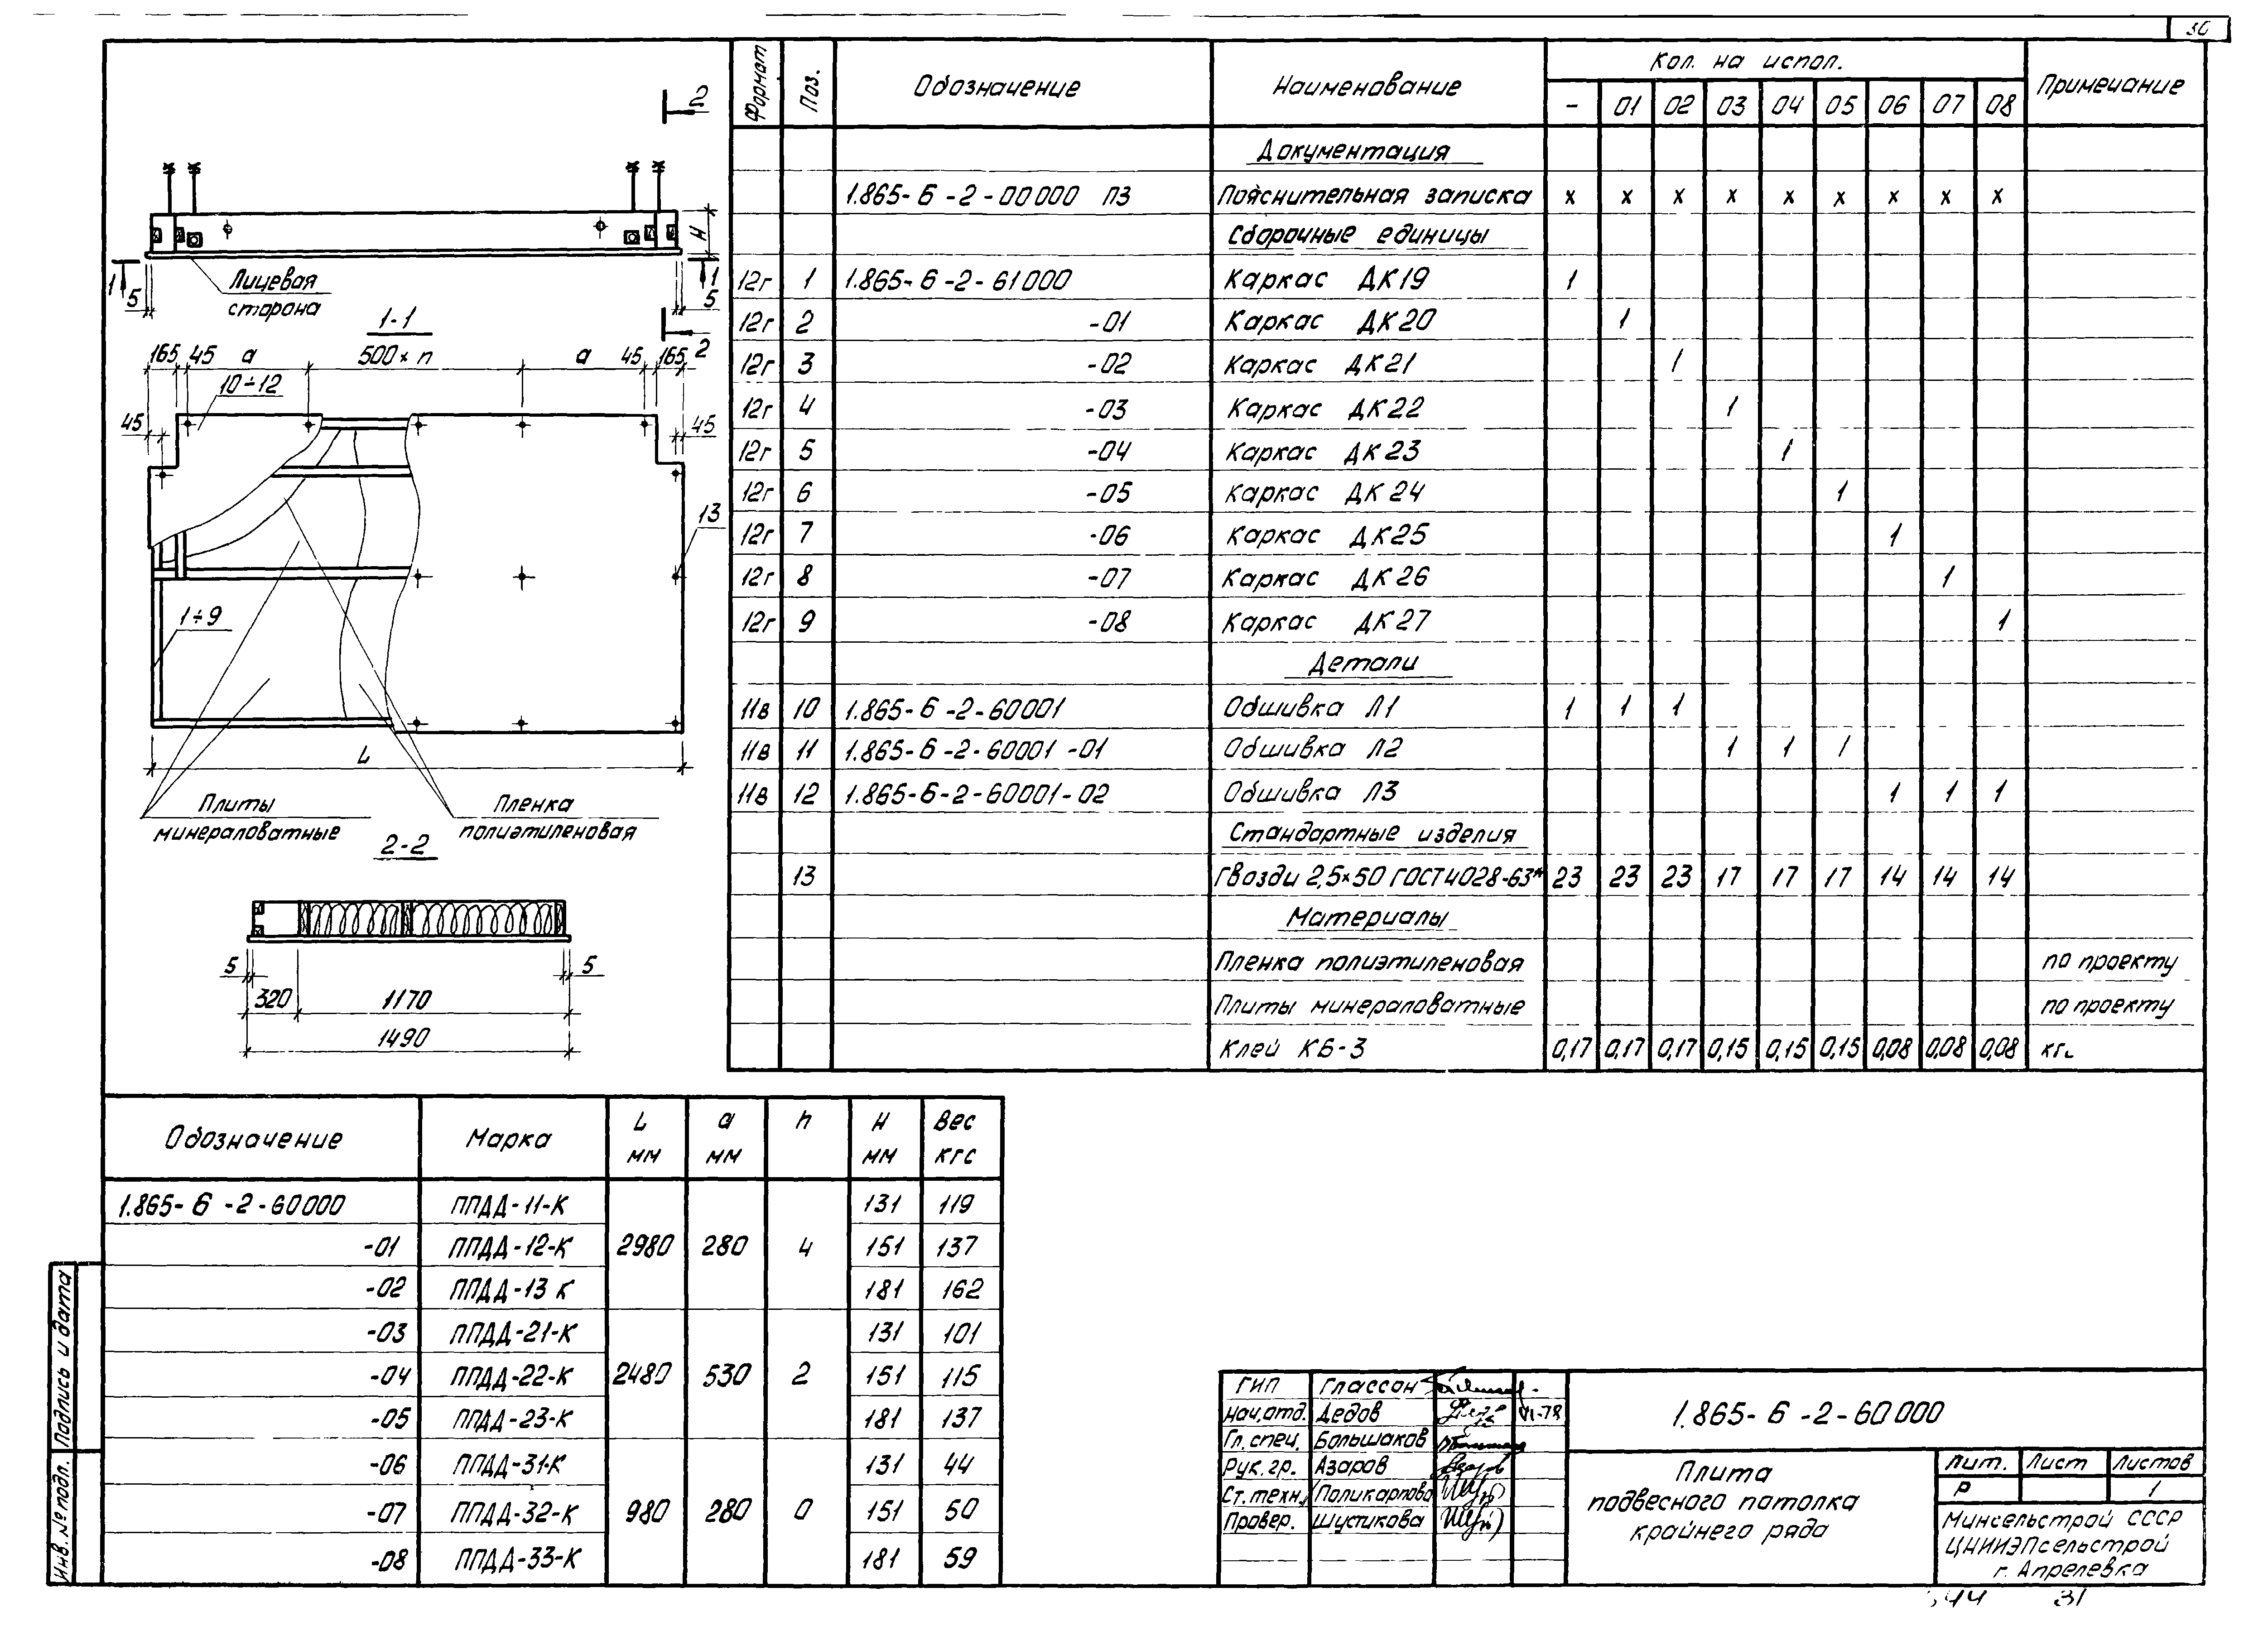 30
2
Лицевая
сторона
H
1
1
5
5
1-1
2
165 45 а 500×n а 45 165
10÷12
45
45
13
1÷9
L
Плиты
минераловатные
Пленка
полиэтиленовая
2-2
5
5
320 1170
1490
Формат Поз. Обозначение Наименование Кол. на испол. Примечание
- 01 02 03 04 05 06 07 08
Документация
1.865-6-2-00000 ПЗ Пояснительная записка x x x x x x x x x
Сборочные единицы
12г 1 1.865-6-2-61000 Каркас ДК19 1
12г 2 -01 Каркас ДК20 1
12г 3 -02 Каркас ДК21 1
12г 4 -03 Каркас ДК22 1
12г 5 -04 Каркас ДК23 1
12г 6 -05 Каркас ДК24 1
12г 7 -06 Каркас ДК25 1
12г 8 -07 Каркас ДК26 1
12г 9 -08 Каркас ДК27 1
Детали
11в 10 1.865-6-2-60001 Обшивка Л1 1 1 1
11в 11 1.865-6-2-60001-01 Обшивка Л2 1 1 1
11в 12 1.865-6-2-60001-02 Обшивка Л3 1 1 1
Стандартные изделия
13 Гвозди 2,5×50 ГОСТ 4028-63* 23 23 23 17 17 17 14 14 14
Материалы
Пленка полиэтиленовая по проекту
Плиты минераловатные по проекту
Клей КБ-3 0,17 0,17 0,17 0,15 0,15 0,15 0,08 0,08 0,08 кгс
Обозначение Марка L мм а мм n H мм Вес кгс
1.865-6-2-60000 ППДД-11-К 131 119
-01 ППДД-12-К 2980 280 4 151 137
-02 ППДД-13 К 181 162
-03 ППДД-21-К 131 101
-04 ППДД-22-К 2480 530 2 151 115
-05 ППДД-23-К 181 137
-06 ППДД-31-К 131 44
-07 ППДД-32-К 980 280 0 151 50
-08 ППДД-33-К 181 59
Подпись и дата
Инв. № подл.
ГИП Глассон
Нач.отд. Дедов VI-78
Гл. спец. Большаков
Рук. гр. Азаров
Ст. техн. Поликарпова
Провер. Шустикова
1.865-6-2-60000
Плита
подвесного потолка
крайнего ряда
Лит. Лист Листов
Р 1
Минсельстрой СССР
ЦНИИЭПсельстрой
г. Апрелевка
44 31